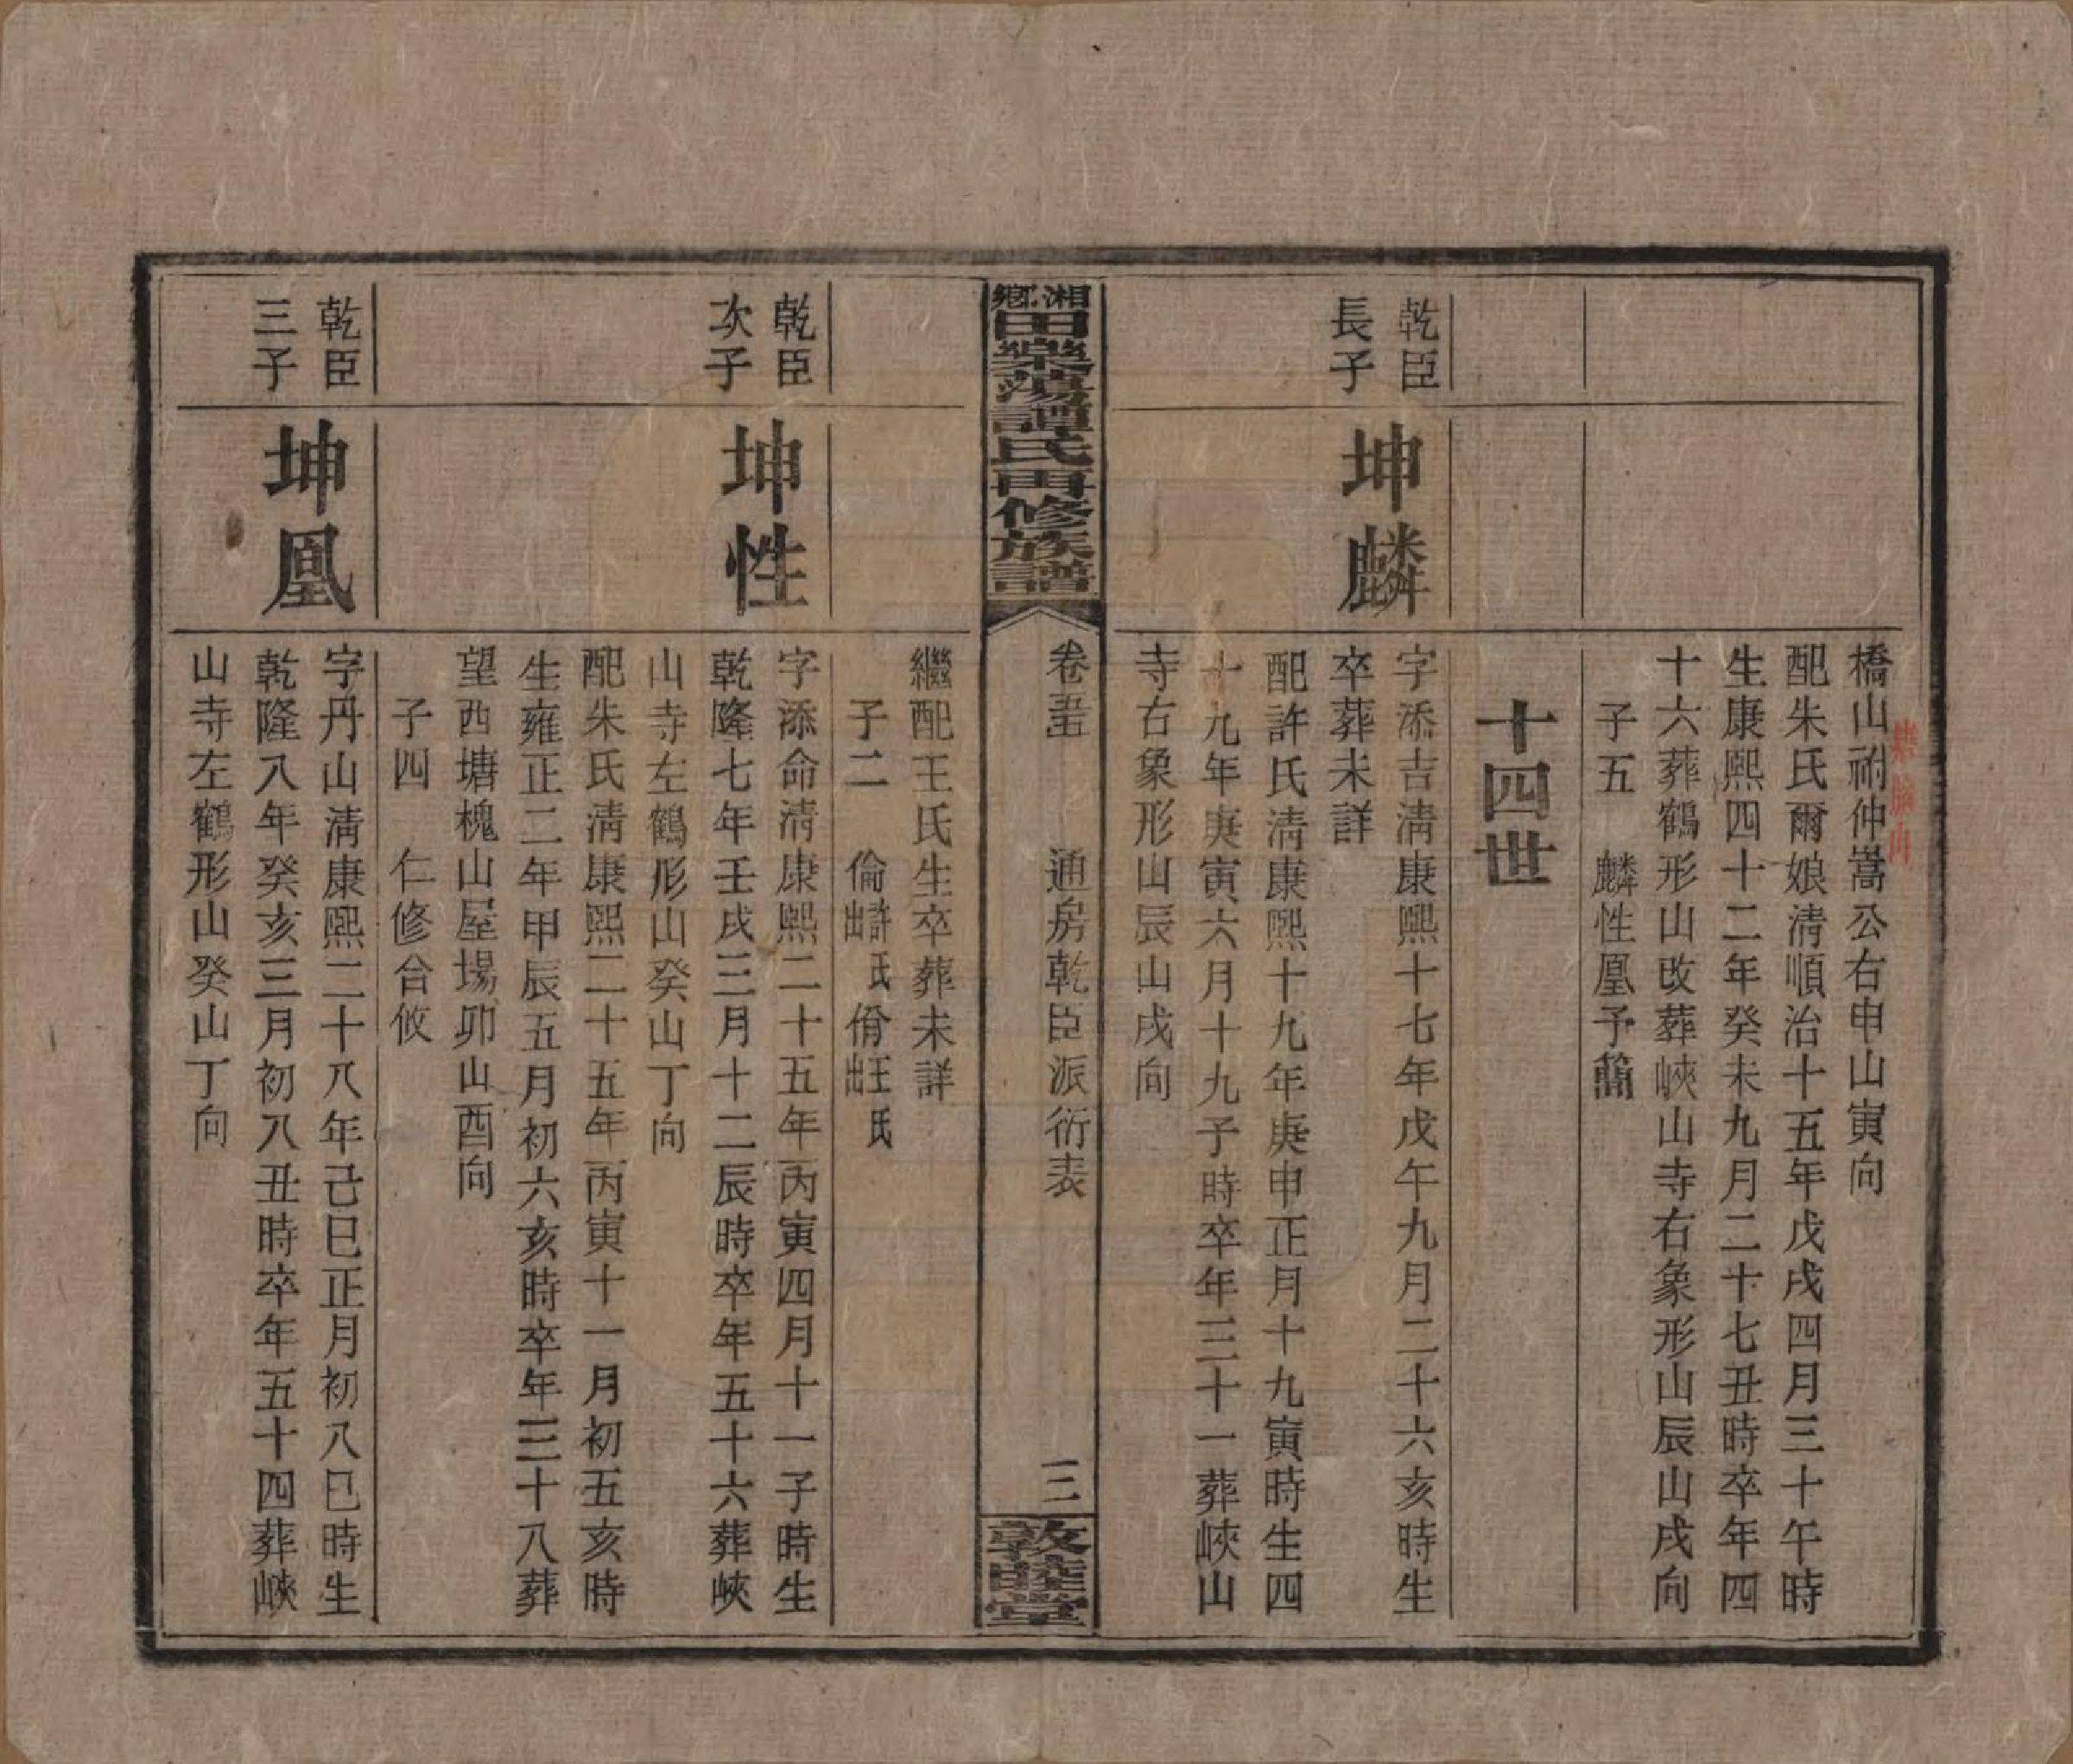 橋山祔仲嵩公右申山寅向
配朱氏爾娘清順治十五年戊戌四月三十午時
生康熙四十二年癸未九月二十七丑時卒年四
十六葬鶴形山改葬峽山寺右象形山辰山戌向
子五　麟性凰予簡
十四世
乾臣
長子
坤麟
字添吉清康熙十七年戊午九月二十六亥時生
卒葬未詳
配許氏清康熙十九年庚申正月十九寅時生四
十九年庚寅六月十九子時卒年三十一葬峽山
寺右象形山辰山戌向
湘鄉田業蕩譚氏再修族譜
卷五
通房乾臣派衍表
三
敦睦堂
繼配王氏生卒葬未詳
子二　倫許氏出　脩王氏出
乾臣
次子
坤性
字添命清康熙二十五年丙寅四月十一子時生
乾隆七年壬戌三月十二辰時卒年五十六葬峽
山寺左鶴形山癸山丁向
配朱氏清康熙二十五年丙寅十一月初五亥時
生雍正二年甲辰五月初六亥時卒年三十八葬
望西塘槐山屋場卯山酉向
子四　仁修合攸
乾臣
三子
坤凰
字丹山清康熙二十八年己巳正月初八巳時生
乾隆八年癸亥三月初八丑時卒年五十四葬峽
山寺左鶴形山癸山丁向